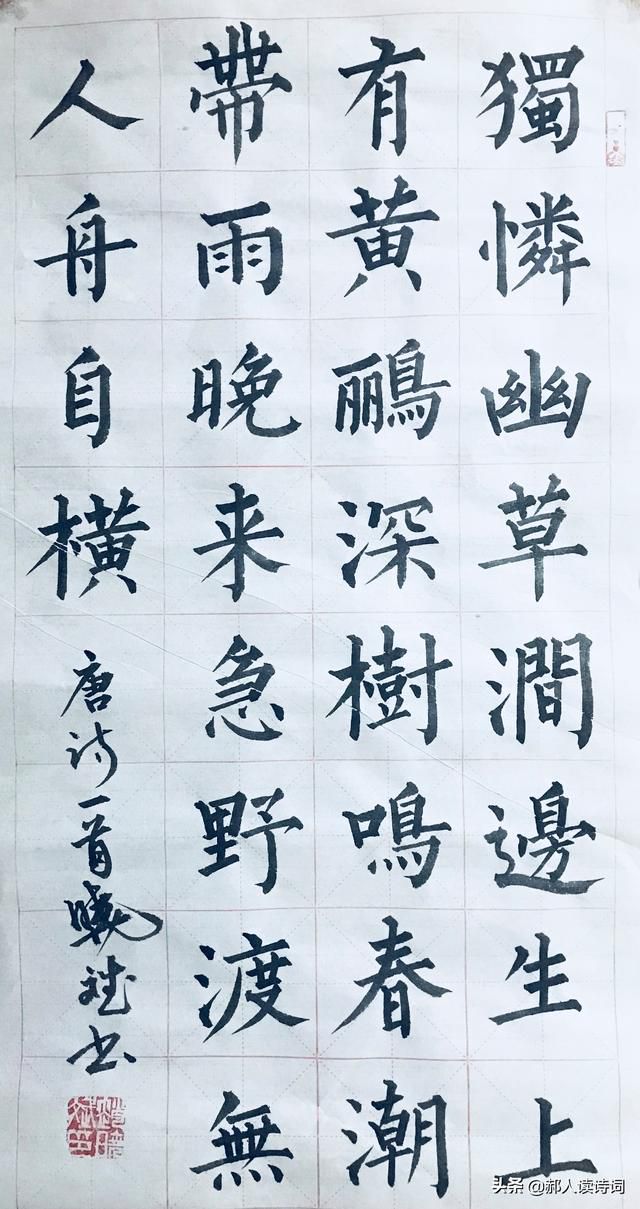 獨憐幽草澗邊生上
有黄鸝深樹鳴春潮
帶雨晚来急野渡無
人舟自橫
唐诗一首曉斌书
头条 @郝人读诗词